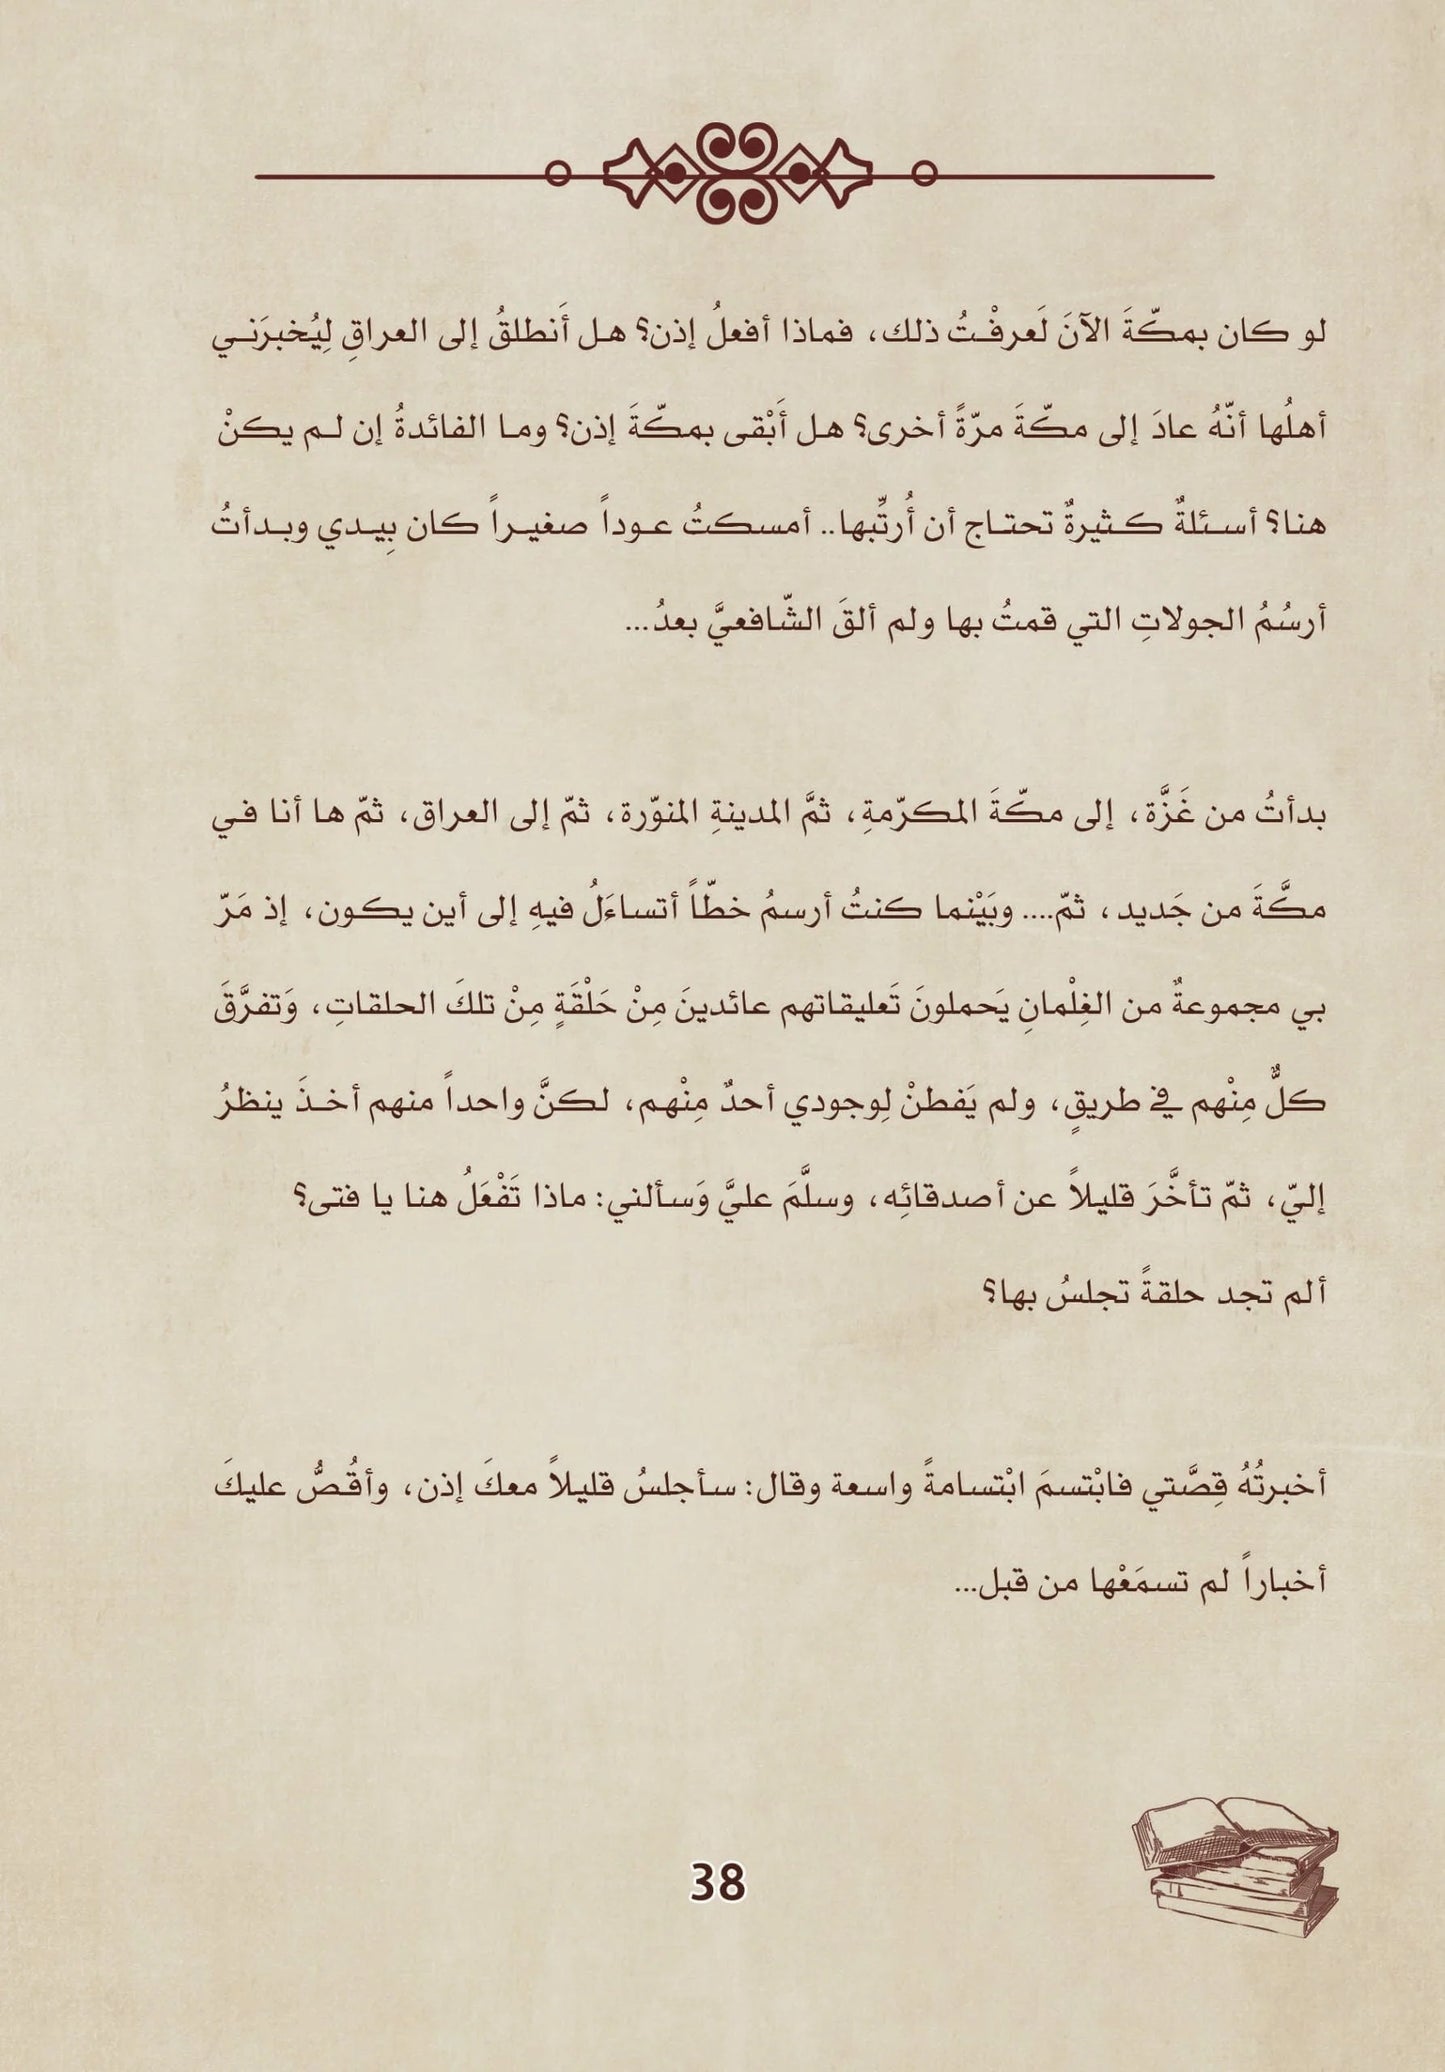 لو كان بمكّةَ الآنَ لَعرفْتُ ذلك، فماذا أفعلُ إذن؟ هل أَنطلقُ إلى العراقِ لِيُخبرَني
أهلُها أنّهُ عادَ إلى مكّةَ مرّةً أخرى؟ هل أَبْقى بمكّةَ إذن؟ وما الفائدةُ إن لم يكنْ
هنا؟ أسئلةٌ كثيرةٌ تحتاج أن أُرتِّبها.. أمسكتُ عوداً صغيراً كان بِيدي وبدأتُ
أرسُمُ الجولاتِ التي قمتُ بها ولم ألقَ الشّافعيَّ بعدُ...
بدأتُ من غَزَّة، إلى مكّةَ المكرّمةِ، ثمَّ المدينةِ المنوّرة، ثمّ إلى العراق، ثمّ ها أنا في
مكَّةَ من جَديد، ثمّ.... وبَيْنما كنتُ أرسمُ خطّاً أتساءَلُ فيهِ إلى أين يكون، إذ مَرّ
بي مجموعةٌ من الغِلْمانِ يَحملونَ تَعليقاتهم عائدينَ مِنْ حَلْقَةٍ مِنْ تلكَ الحلقاتِ، وَتفرَّقَ
كلٌّ مِنْهم في طريقٍ، ولم يَفطنْ لِوجودي أحدٌ مِنْهم، لكنَّ واحداً منهم أخذَ ينظرُ
إليّ، ثمّ تأخَّرَ قليلاً عن أصدقائِه، وسلَّمَ عليَّ وَسألني: ماذا تَفْعَلُ هنا يا فتى؟
ألم تجد حلقةً تجلسُ بها؟
أخبرتُهُ قِصَّتي فابْتسمَ ابْتسامةً واسعة وقال: سأجلسُ قليلاً معكَ إذن، وأقُصُّ عليكَ
أخباراً لم تسمَعْها من قبل...
38